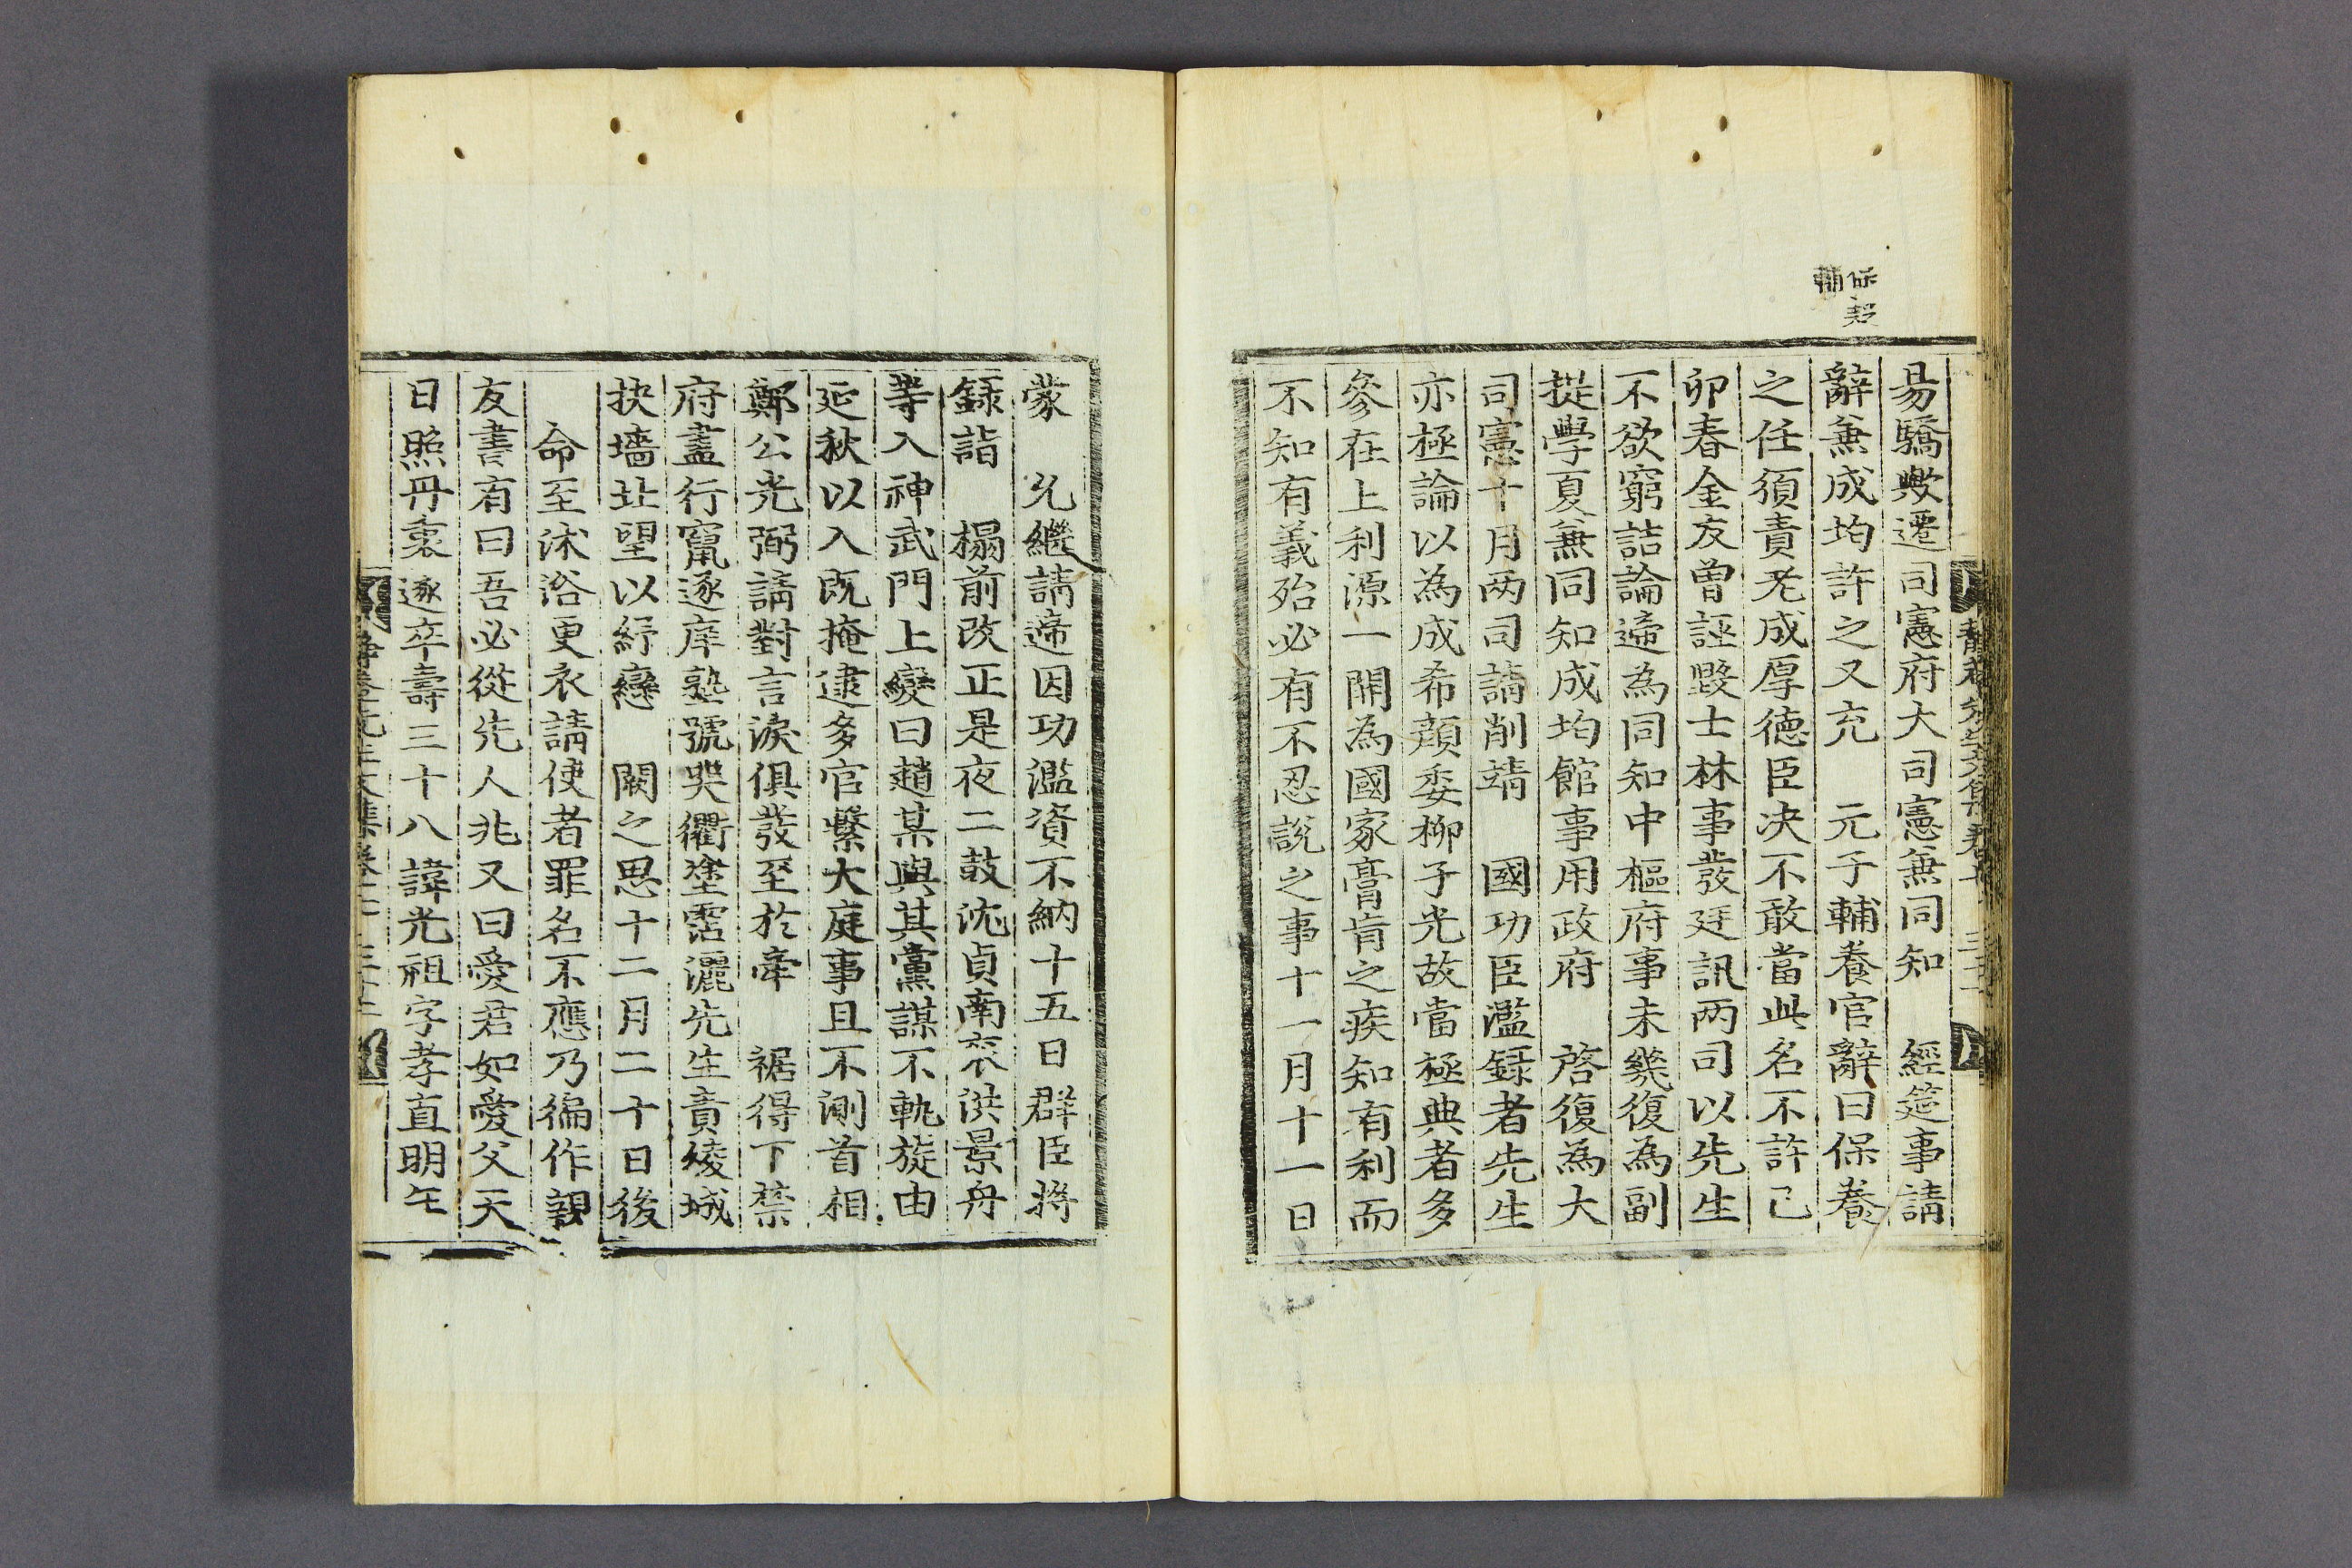 易驕歟遷司憲府大司憲兼同知　經筵事請
辭兼成均許之又充　元子輔養官辭曰保養
之任須責老成厚德臣决不敢當此名不許己
卯春金友曾誣毀士林事發廷訊兩司以先生
不欲窮詰論遞為同知中樞府事未幾復為副
提學夏兼同知成均館事用政府　啓復為大
司憲十月兩司請削靖　國功臣濫録者先生
亦極論以為成希顔委柳子光故當極典者多
參在上利源一開為國家膏肓之疾知有利而
不知有義殆必有不忍說之事十一月十一日
蒙　允繼請遞因功濫資不納十五日群臣將
録詣　榻前改正是夜二鼓沈貞南衮洪景舟
等入神武門上變曰趙某與其黨謀不軌旋由
延秋以入既掩逮多官繫大庭事且不測首相
鄭公光弼請對言淚俱發至於牽　裾得下禁
府盡行竄逐庠塾號哭衢塗霑灑先生責綾城
抉墻北望以紓戀　闕之思十二月二十日後
命至沐浴更衣請使者罪名不應乃徧作親
友書有曰吾必從先人兆又曰愛君如愛父天
日照丹衷遂卒壽三十八諱光祖字孝直明年
先生文集卷